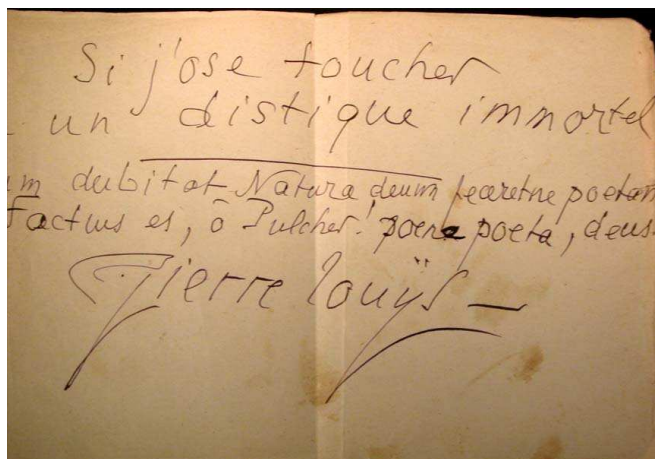 Si j'ose toucher
un distique immortel
um dubitat Natura, deum feceretne poetam
factus es, ô Pulcher! poene poeta, deus.
Pierre Louÿs